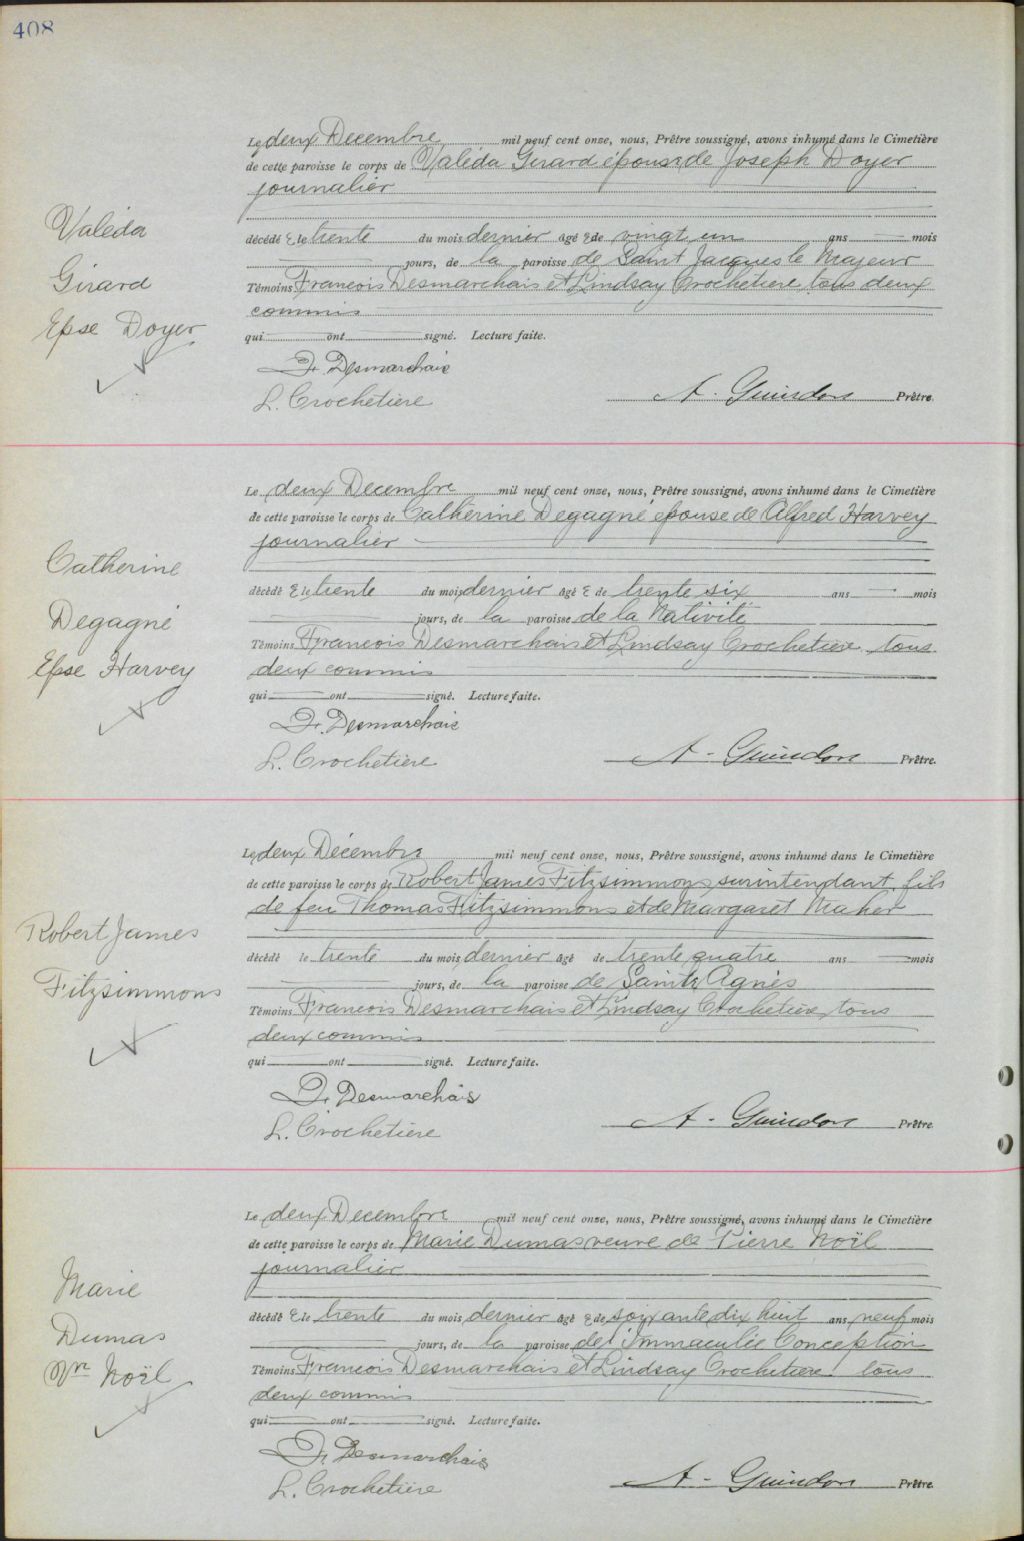 408
Valéda
Girard
Epse Doyer
Le deux Decembre mil neuf cent onze, nous, Prêtre soussigné, avons inhumé dans le Cimetière
de cette paroisse le corps de Valéda Girard épouse de Joseph Doyer
journalier
décédé e le trente du mois dernier âgé e de vingt un ans — mois
— jours, de la paroisse de Saint Jacques le Majeur
Témoins Francois Desmarchais et Lindsay Crochetiere tous deux
commis
qui — ont — signé. Lecture faite.
Fr. Desmarchais
L. Crochetière
A. Guindon Prêtre.
Catherine
Degagné
Epse Harvey
Le deux Decembre mil neuf cent onze, nous, Prêtre soussigné, avons inhumé dans le Cimetière
de cette paroisse le corps de Catherine Degagné épouse de Alfred Harvey
journalier
décédé e le trente du mois dernier âgé e de trente six ans — mois
— jours, de la paroisse de la Nativité
Témoins Francois Desmarchais et Lindsay Crochetière tous
deux commis
qui — ont — signé. Lecture faite.
Fr. Desmarchais
L. Crochetière
A. Guindon Prêtre.
Robert James
Fitzsimmons
Le deux Décembre mil neuf cent onze, nous, Prêtre soussigné, avons inhumé dans le Cimetière
de cette paroisse le corps de Robert James Fitzsimmons surintendant fils
de feu Thomas Fitzsimmons et de Margaret Maher
décédé le trente du mois dernier âgé de trente quatre ans — mois
— jours, de la paroisse de Sainte Agnès
Témoins Francois Desmarchais et Lindsay Crochetière tous
deux commis
qui — ont — signé. Lecture faite.
Fr. Desmarchais
L. Crochetière
A. Guindon Prêtre
Marie
Dumas
Vve Noël
Le deux Decembre mil neuf cent onze, nous, Prêtre soussigné, avons inhumé dans le Cimetière
de cette paroisse le corps de Marie Dumas veuve de Pierre Noël
journalier
décédé e le trente du mois dernier âgé e de soixante dix huit ans neuf mois
— jours, de la paroisse de l'Immaculée Conception
Témoins Francois Desmarchais et Lindsay Crochetiere tous
deux commis
qui — ont — signé. Lecture faite.
Fr. Desmarchais
L. Crochetière
A. Guindon Prêtre.